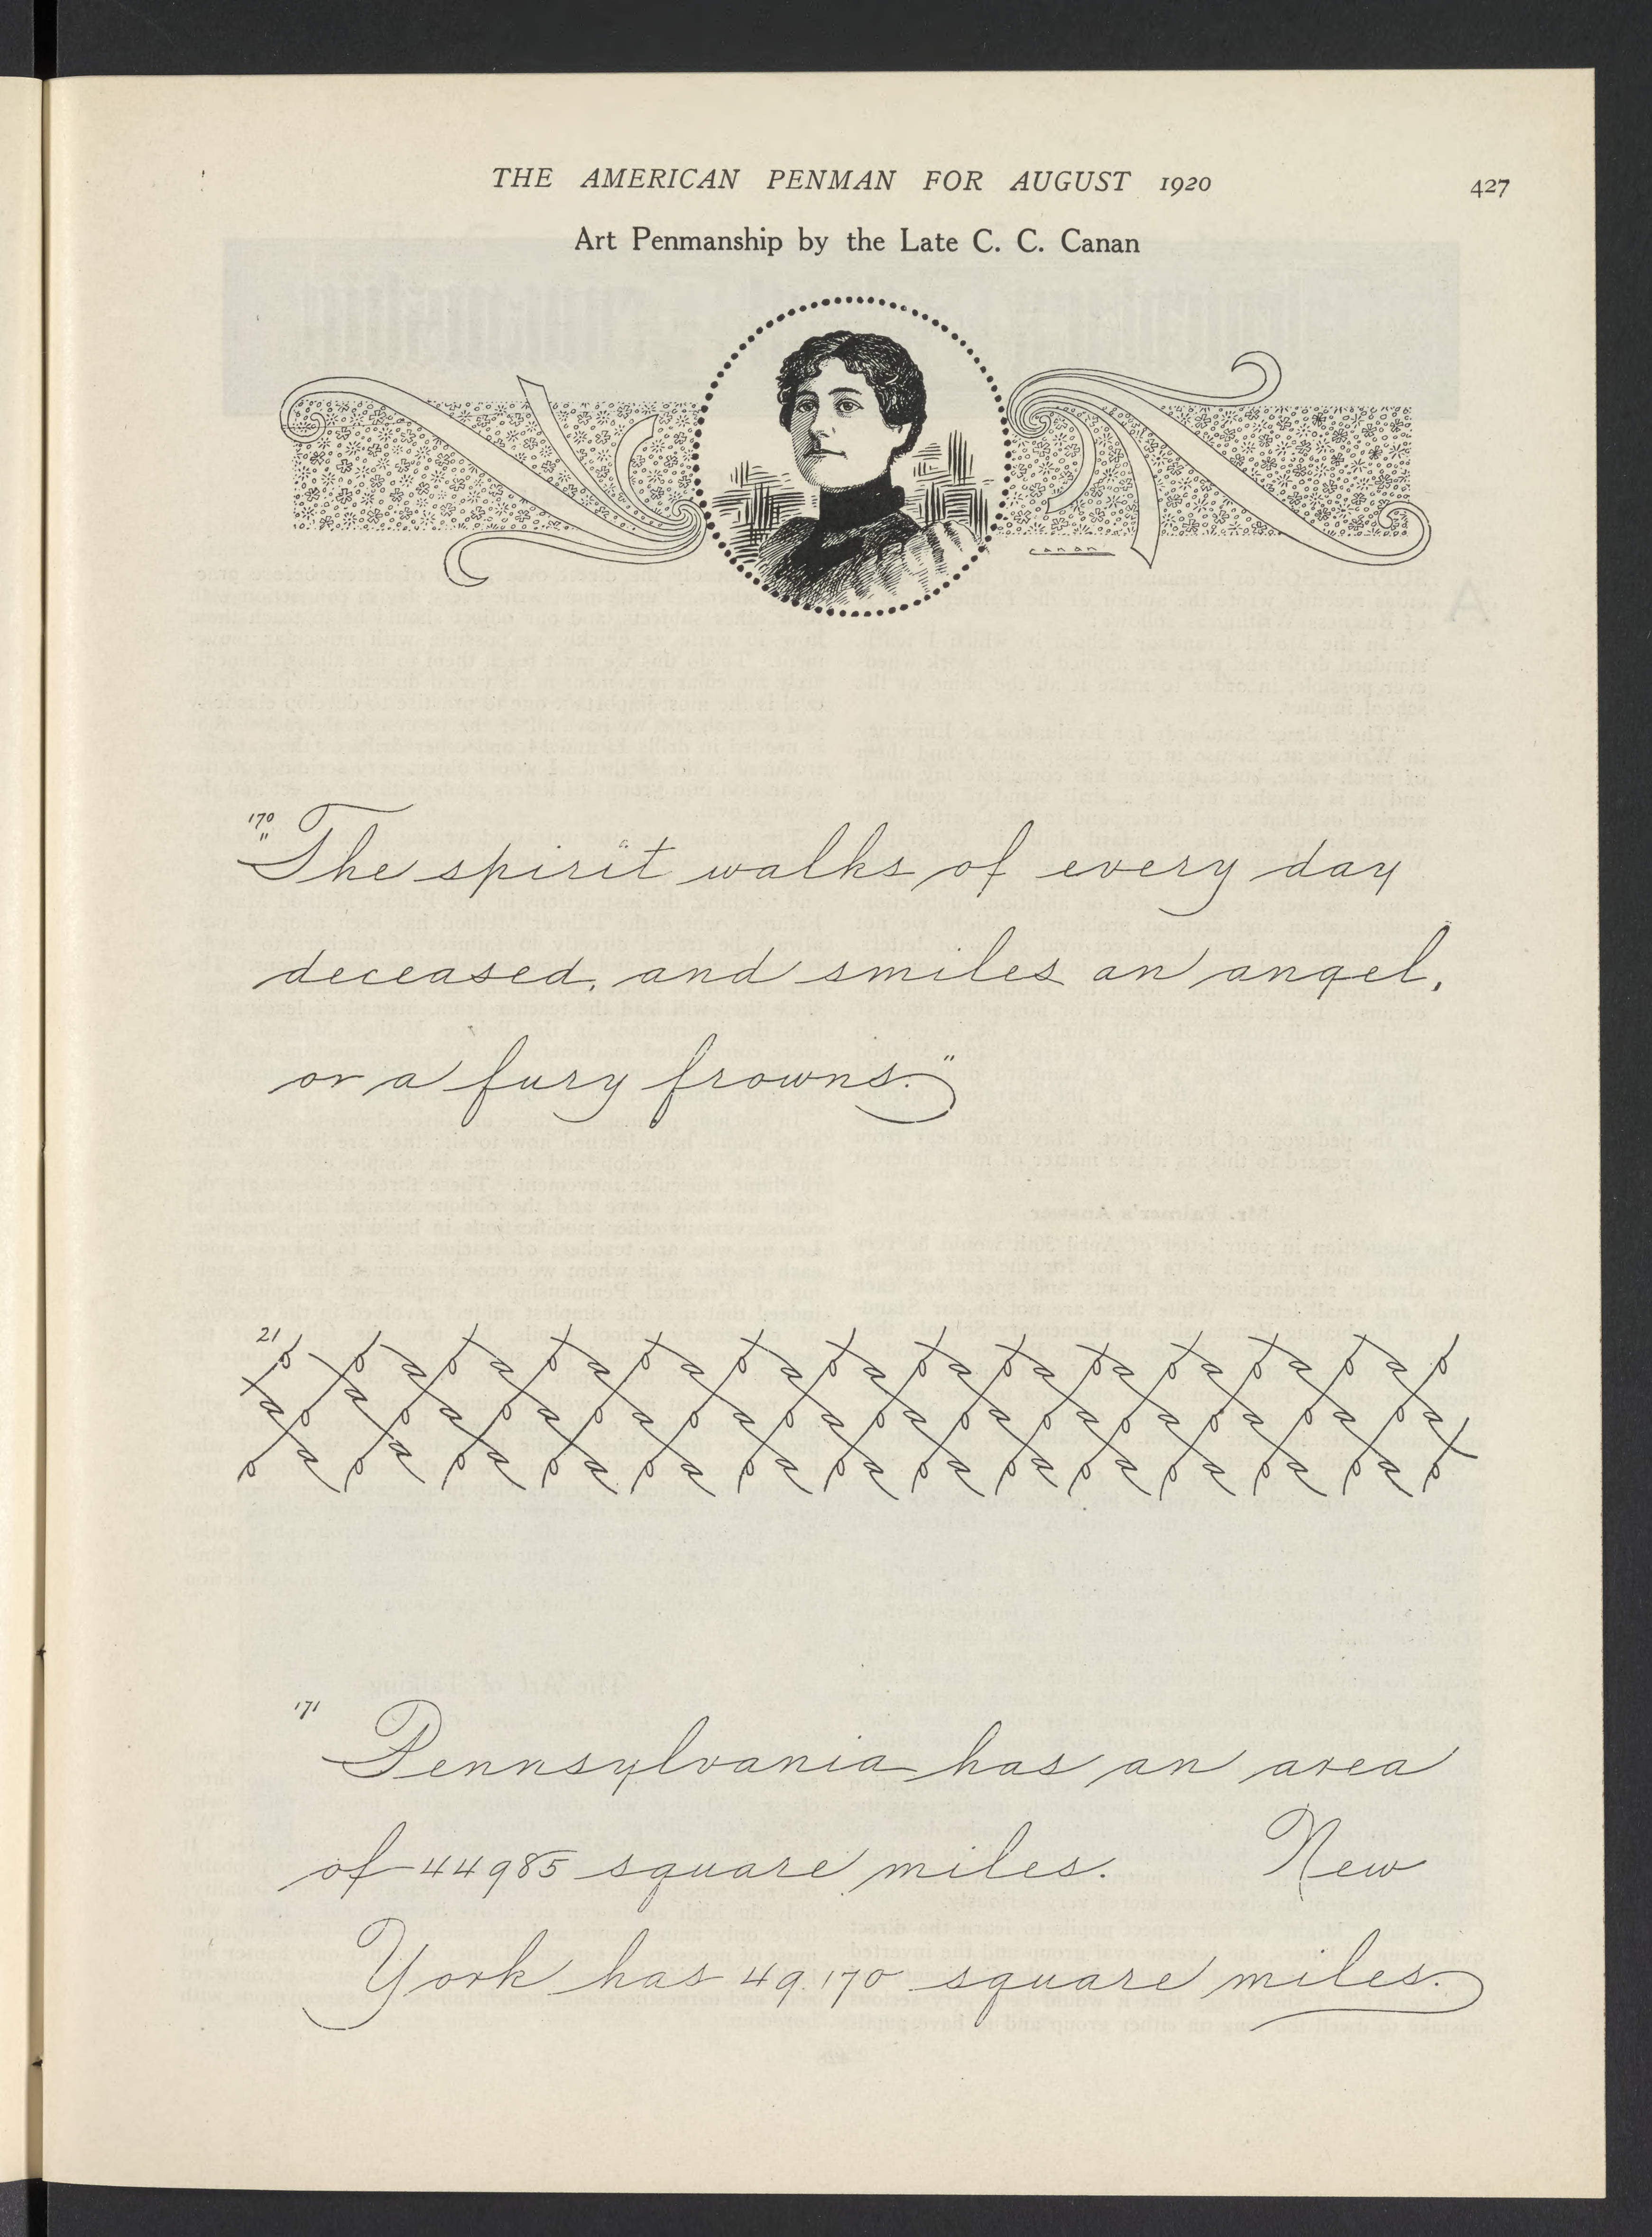 THE AMERICAN PENMAN FOR AUGUST 1920 427
Art Penmanship by the Late C. C. Canan
canan
170
"The spirit walks of every day
deceased, and smiles an angel,
or a fury frowns."
21
171
Pennsylvania has an area
of 44985 square miles. New
York has 49.170 square miles.